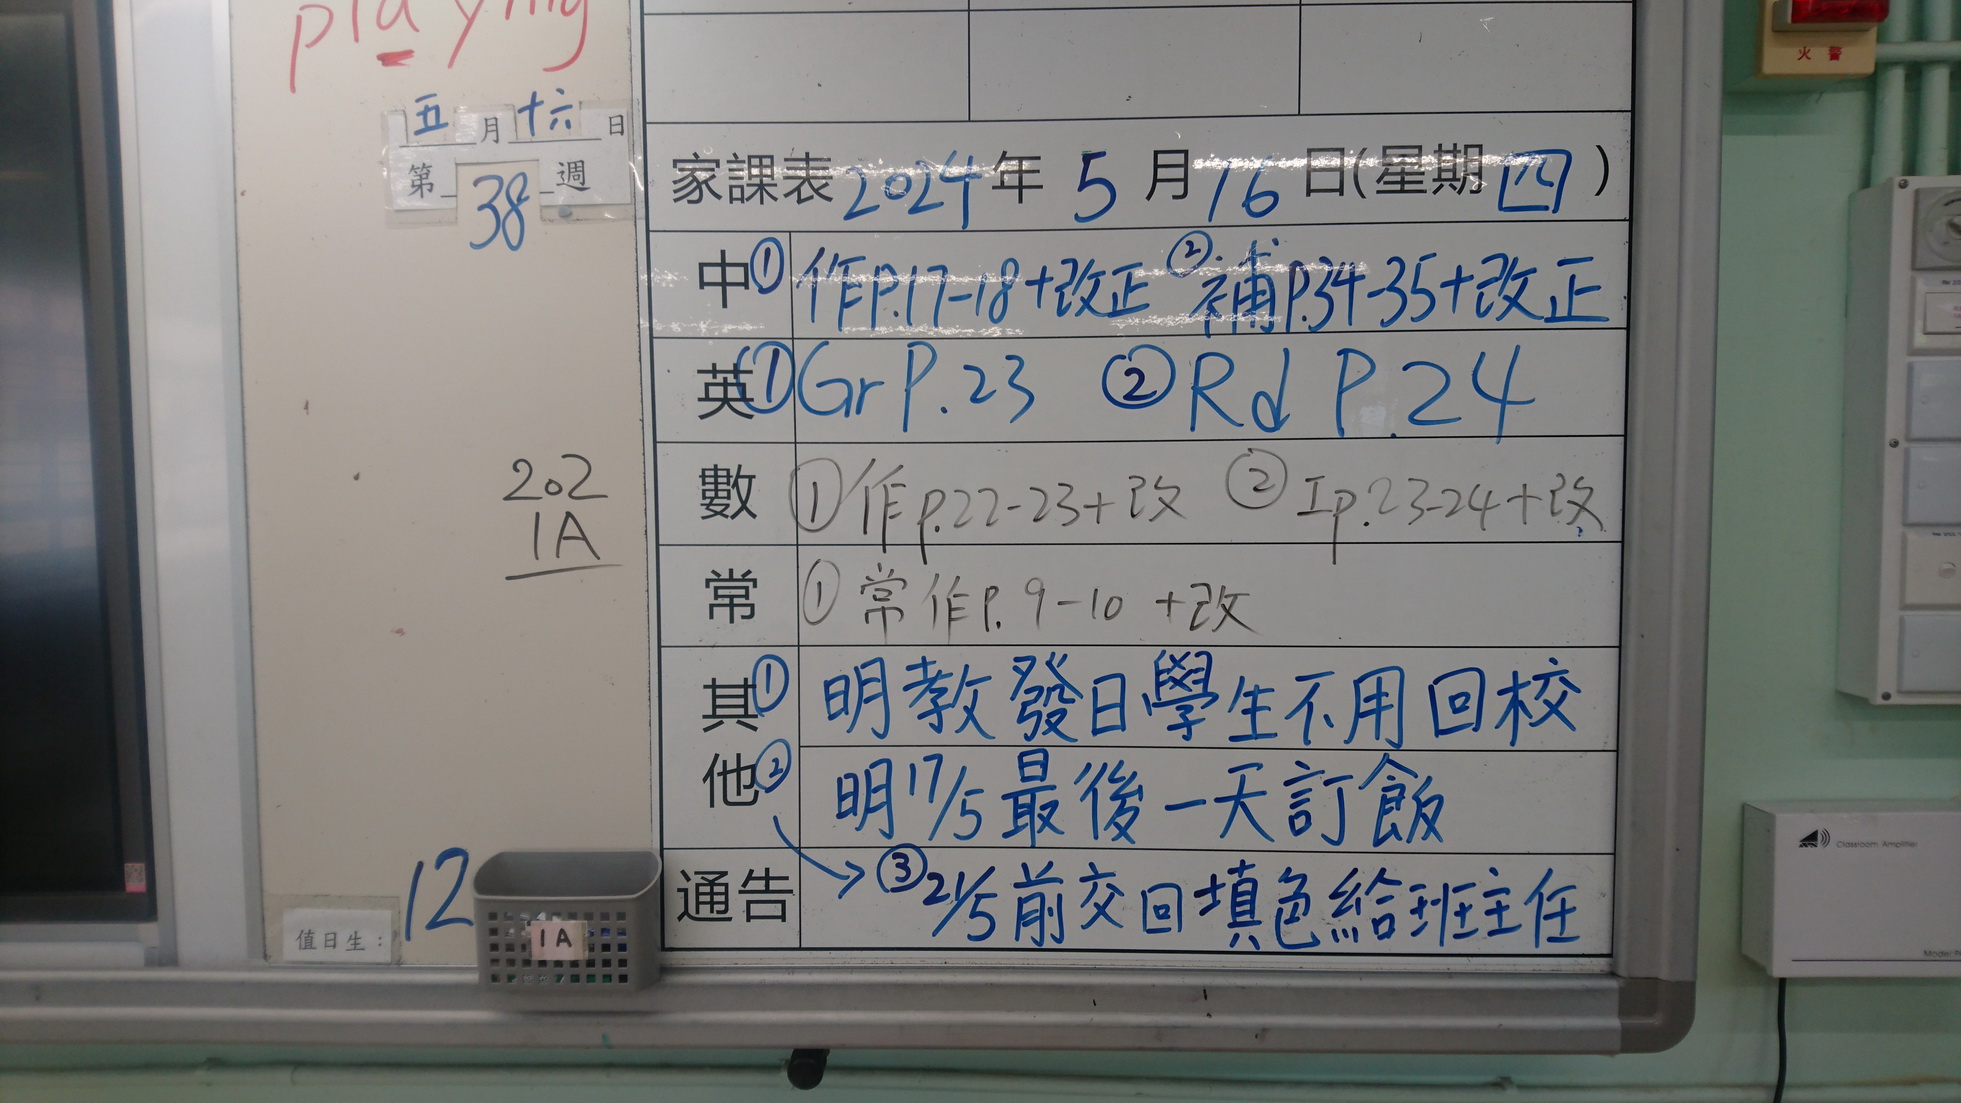 playing
五月十六日
第38週
202
1A
值日生：12
1A
家課表2024年5月16日(星期四)
中①作P.17-18+改正 ②補P.34-35+改正
英①Gr P.23 ②Rd P.24
數①作p.22-23+改 ②工p.23-24+改
常①常作P.9-10+改
其他①明教發日學生不用回校
②明17/5最後一天訂飯
通告 → ③21/5前交回填色給班主任
火警
Classroom Amplifier